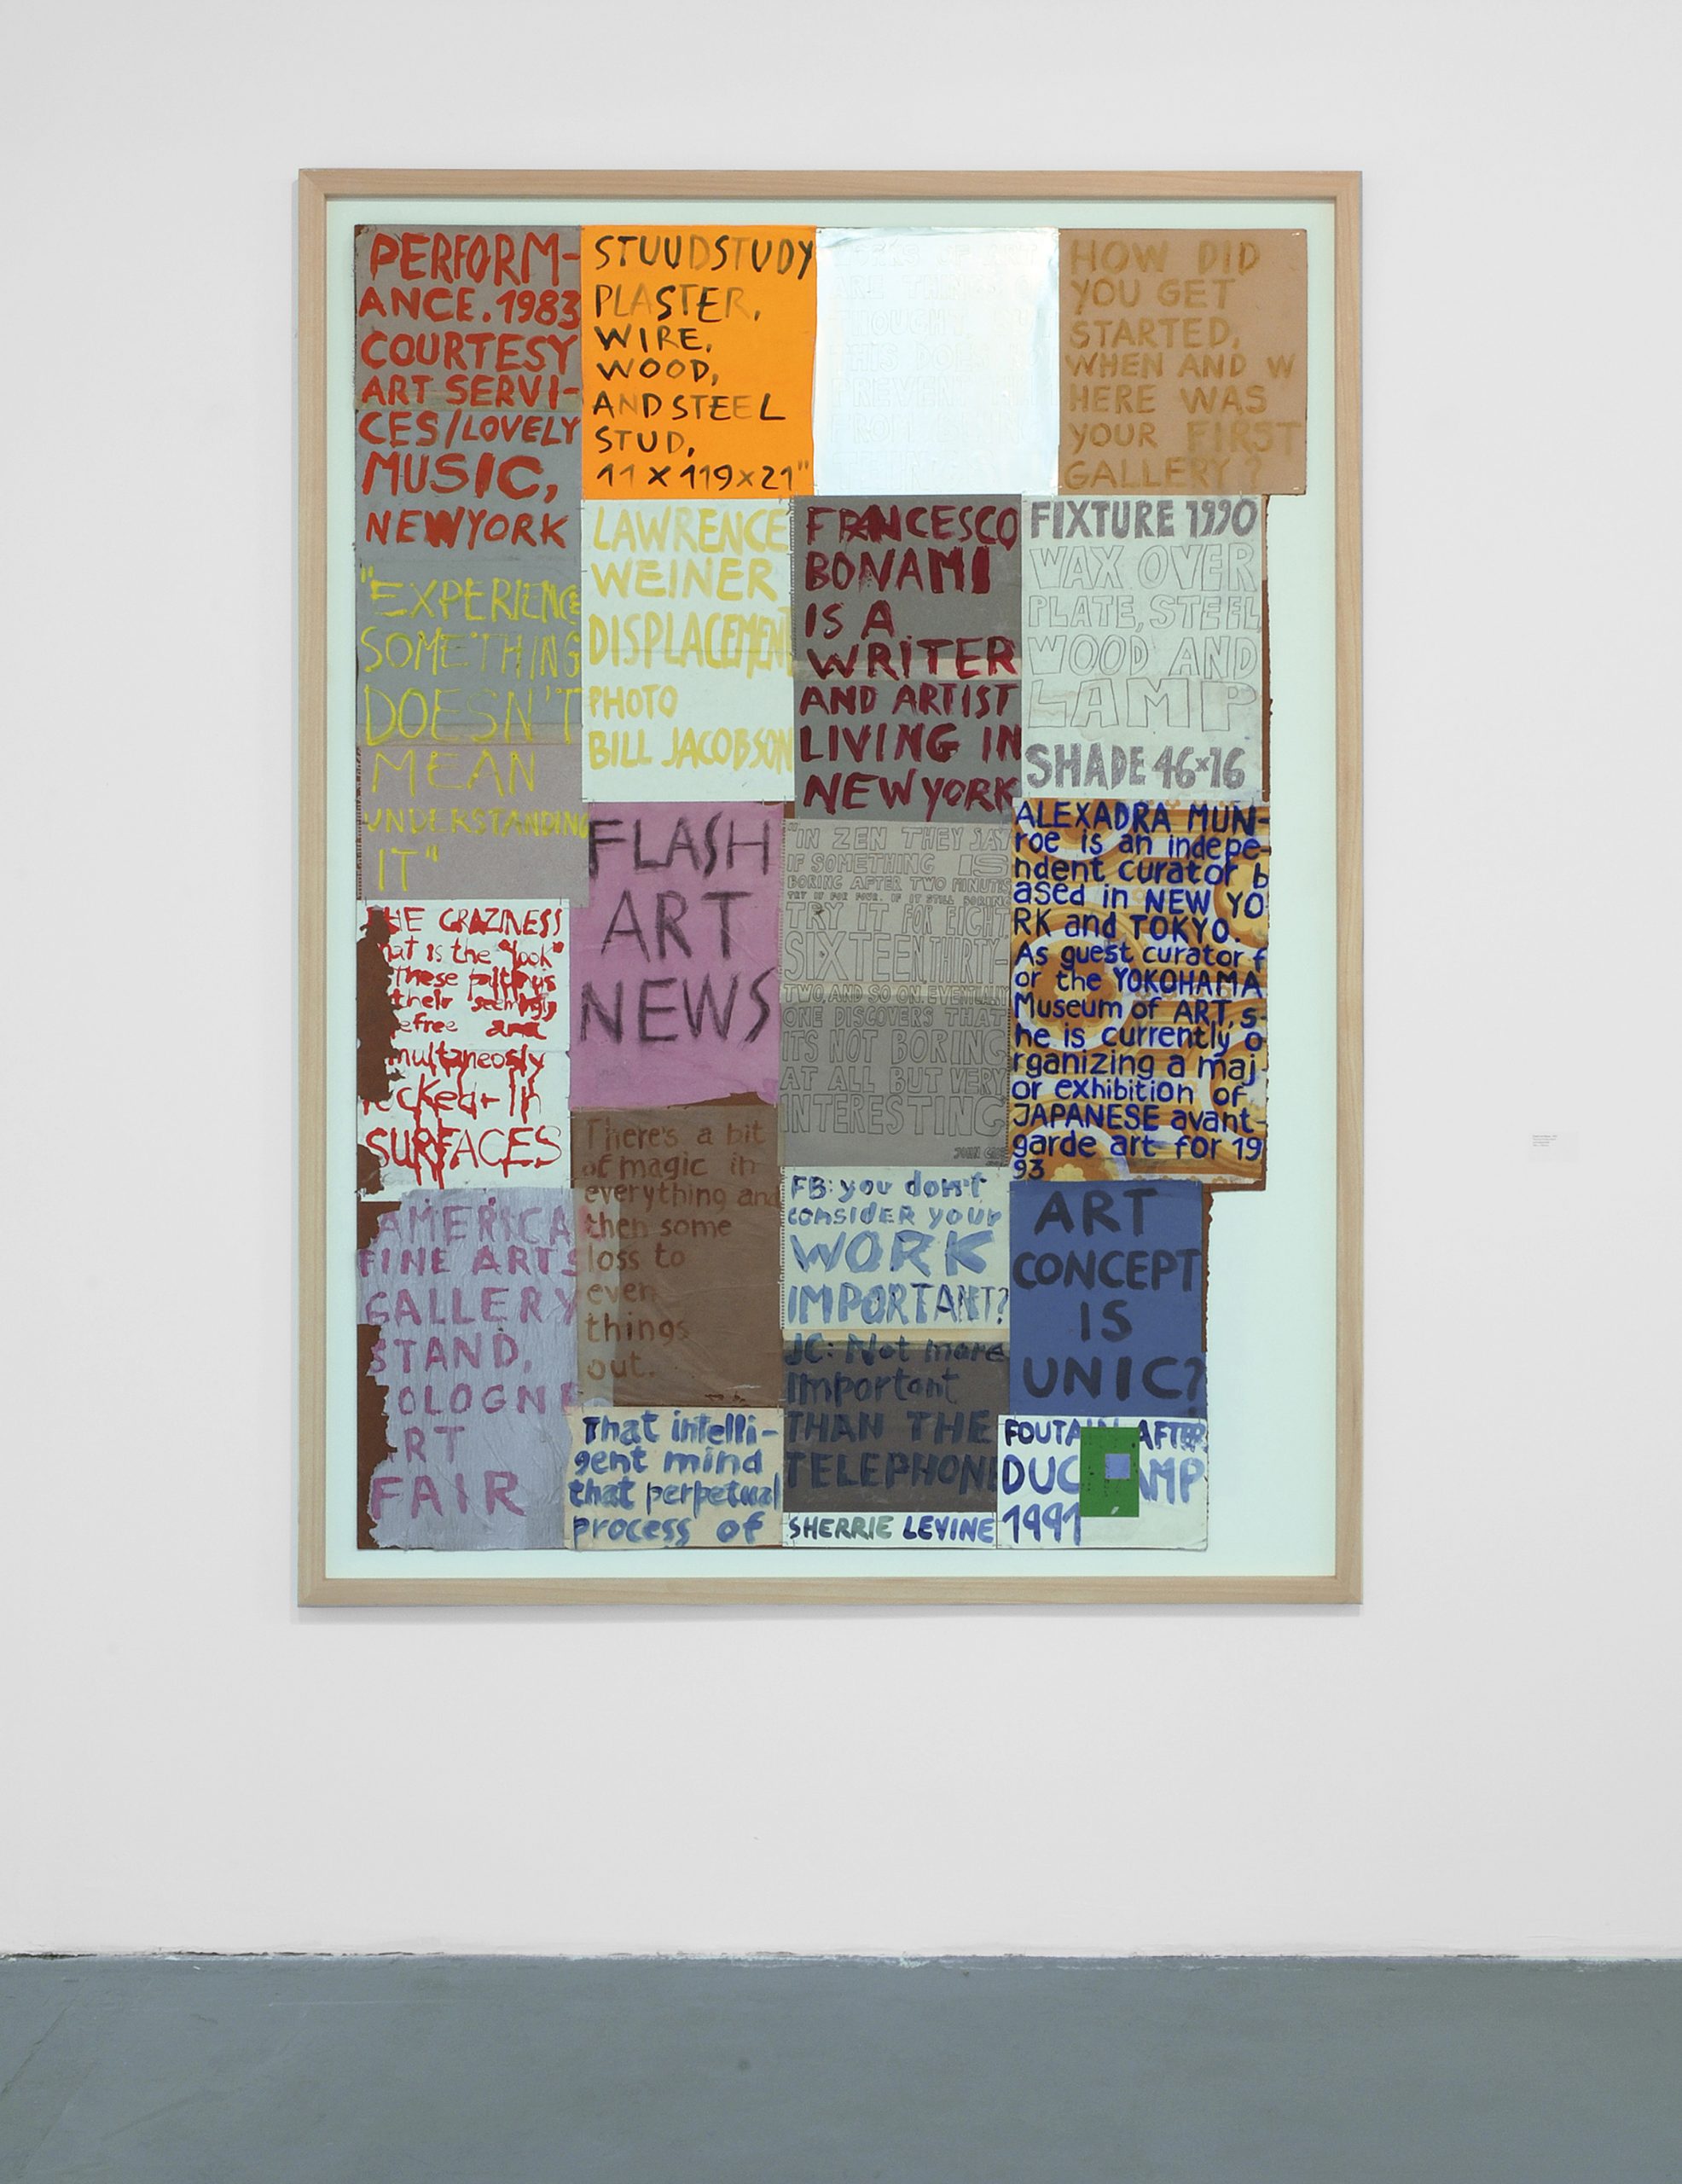 PERFORM-
ANCE. 1983
COURTESY
ART SERVI-
CES/LOVELY
MUSIC,
NEWYORK
"EXPERIENCE
SOMETHING
DOESN'T
MEAN
UNDERSTANDING
IT"
HE CRAZINESS
at is the "look"
these
their seemingly
efree and
multaneosly
ocked-In
SURFACES
AMERICA
FINE ARTS
GALLERY
STAND,
OLOGNE
RT
FAIR
STUUDSTUDY
PLASTER,
WIRE,
WOOD,
AND STEEL
STUD,
11 X 119x21"
LAWRENCE
WEINER
DISPLACEMENT
PHOTO
BILL JACOBSON
FLASH
ART
NEWS
There's a bit
of magic in
everything and
then some
loss to
even
things
out.
That intelli-
gent mind
that perpetual
process of
ARE THINGS
THOUGHT
THIS DOES
PREVENT
FROM
FRANCESCO
BONAMI
IS A
WRITER
AND ARTIST
LIVING IN
NEW YORK
"IN ZEN THEY SAY
IF SOMETHING IS
BORING AFTER TWO MINUTES
TRY IT FOR FOUR. IF IT STILL BORING
TRY IT FOR EIGHT,
SIXTEEN THIRTY-
TWO, AND SO ON. EVENTUALLY
ONE DISCOVERS THAT
ITS NOT BORING
AT ALL BUT VERY
INTERESTING
JOHN CAGE
FB: you don't
consider your
WORK
IMPORTANT?
JC: Not more
Important
THAN THE
TELEPHONE
SHERRIE LEVINE
HOW DID
YOU GET
STARTED,
WHEN AND W
HERE WAS
YOUR FIRST
GALLERY?
FIXTURE 1990
WAX OVER
PLATE, STEEL
WOOD AND
LAMP
SHADE 46x16
ALEXADRA MUN-
roe is an indepe-
ndent curator b
ased in NEW YO
RK and TOKYO.
As guest curator f
or the YOKOHAMA
Museum of ART, s-
he is currently o
rganizing a maj-
or exhibition of
JAPANESE avant-
garde art for 19
93
ART
CONCEPT
IS
UNIC?
FOUTA AFTER
DUC AMP
1991